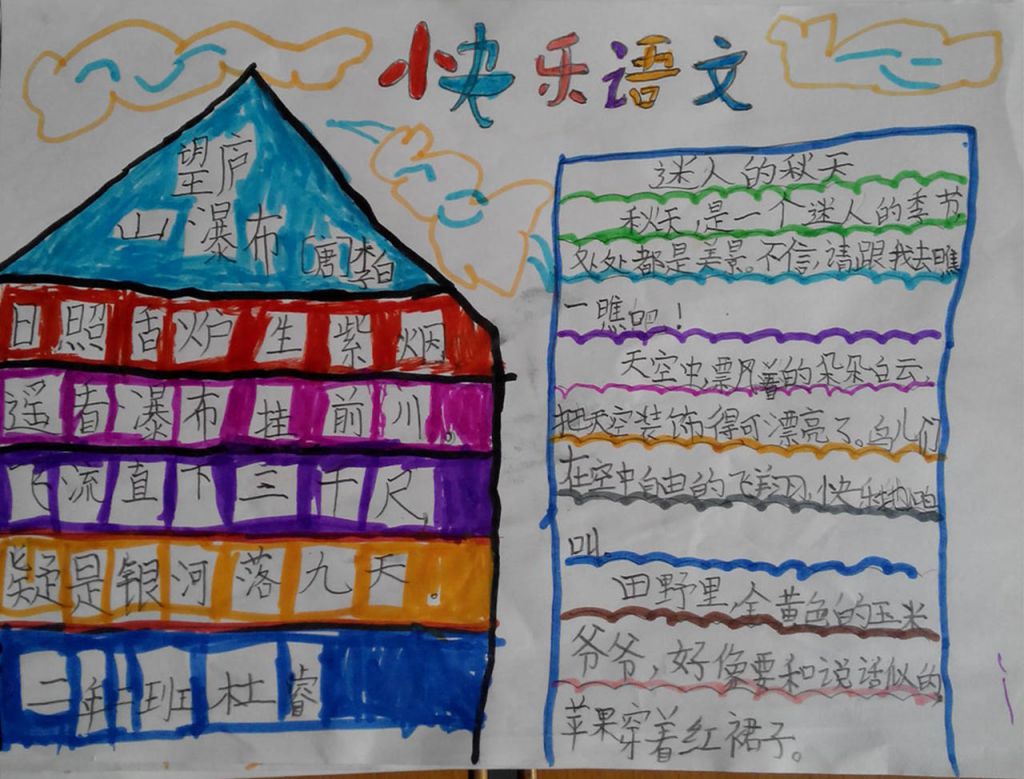 快乐语文
望庐
山瀑布
[唐]李白
日照香炉生紫烟
遥看瀑布挂前川。
飞流直下三千尺,
疑是银河落九天。
二年二班杜睿
迷人的秋天
秋天,是一个迷人的季节
处处都是美景。不信,请跟我去瞧
一瞧吧!
天空中,飘着的朵朵白云,
把天空装饰得可漂亮了。鸟儿们
在空中自由的飞翔,快乐地鸣
叫。
田野里,金黄色的玉米
爷爷,好像要和说话似的
苹果穿着红裙子。